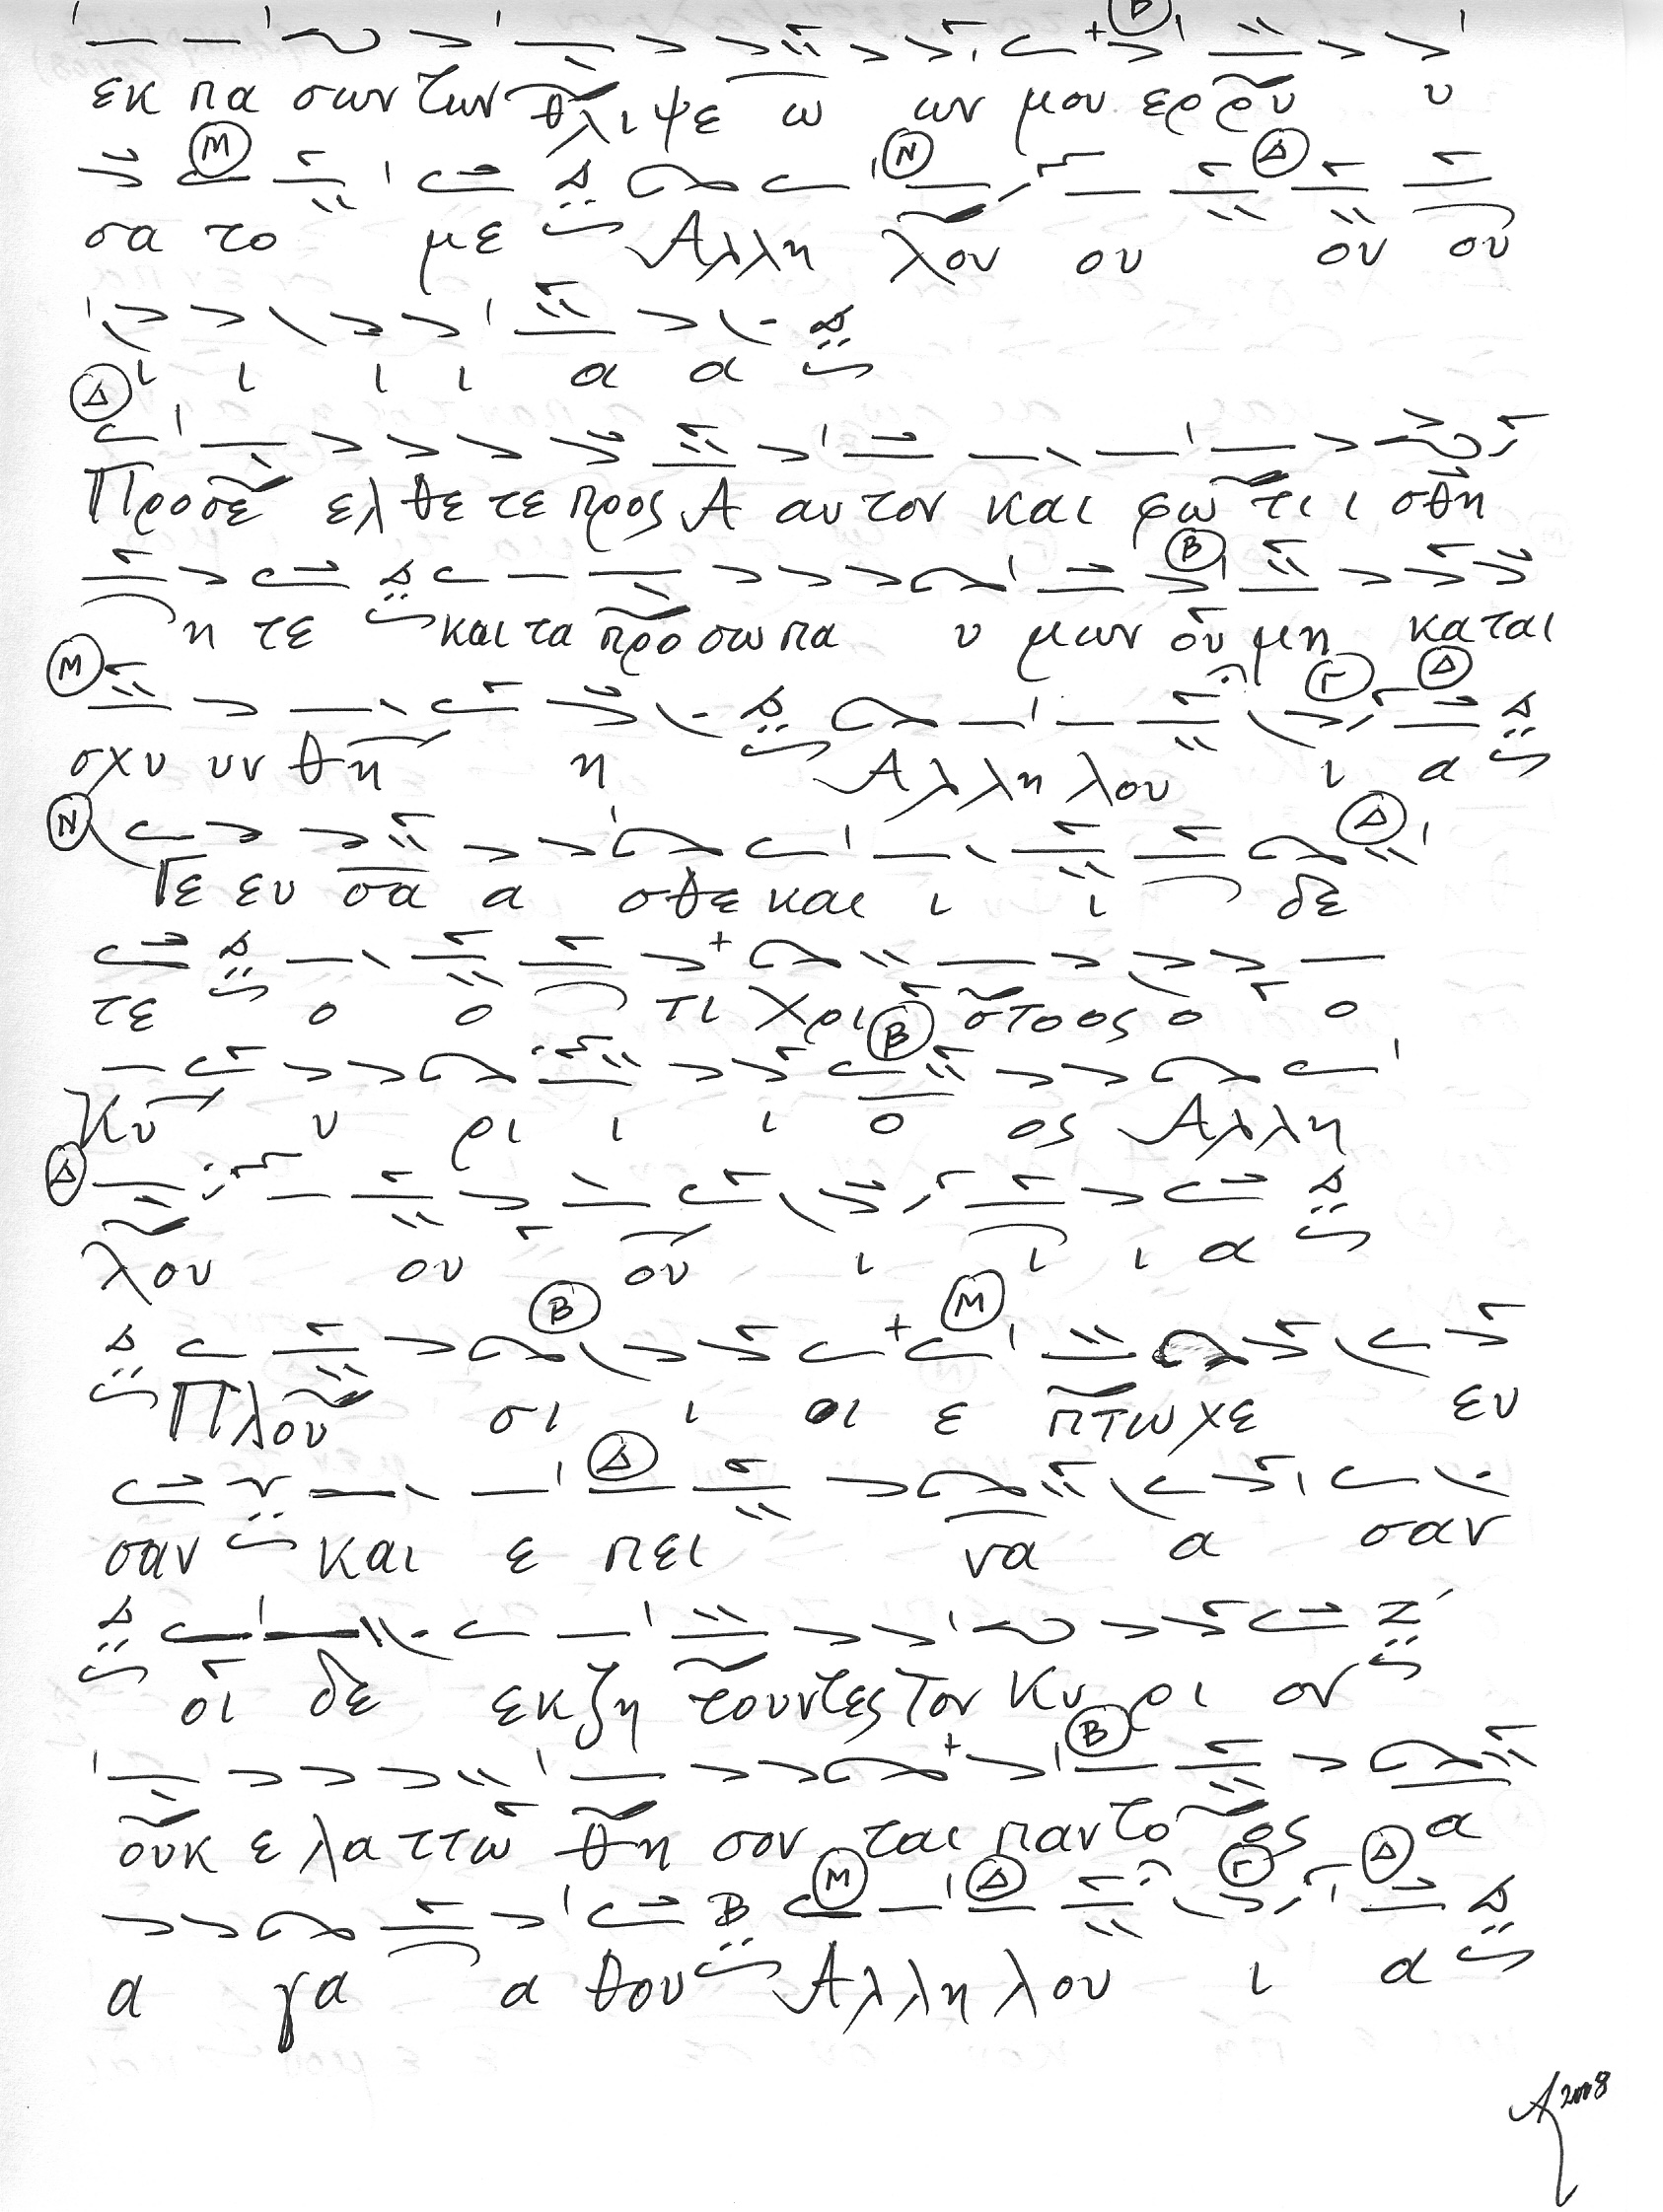 εκ πα σων των θλι ψε ω ων μου ερρυ υ
σα το με Αλλη λου ου ου ου
ι ι ι ι α α
Προσε ελ θε τε προς Α αυ τον και φω τι ι σθη
η τε και τα προ σω πα υ μων ου μη καται
σχυ υν θη η Αλλη λου ι α
Γε ευ σα α σθε και ι ι δε
τε ο ο τι Χρι στο ος ο ο
Κυ υ ρι ι ι ο ος Αλλη
λου ου ου ι ι ι α
Πλου σι ι οι ε πτω χε ευ
σαν και ε πει να α σαν
οι δε εκζη τουντες τον Κυ ρι ον
ουκ ε λα ττω θη σον ται παντο ος α
α γα α θου Αλλη λου ι α
2008